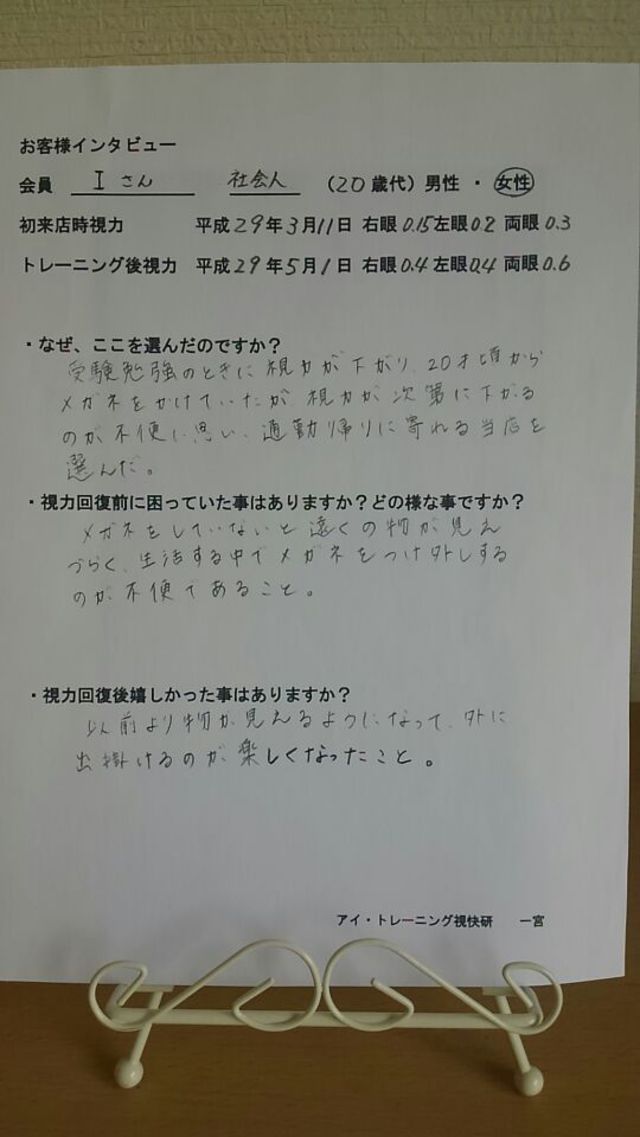 お客様インタビュー
会員 I さん 社会人 （20歳代）男性・女性
初来店時視力 平成29年3月11日 右眼0.15左眼0.2 両眼0.3
トレーニング後視力 平成29年5月1日 右眼0.4左眼0.4 両眼0.6
・なぜ、ここを選んだのですか？
受験勉強のときに視力が下がり、20才頃から
メガネをかけていたが、視力が次第に下がる
のが不便に思い、通勤帰りに寄れる当店を
選んだ。
・視力回復前に困っていた事はありますか？どの様な事ですか？
メガネをしていないと遠くの物が見え
づらく、生活する中でメガネをつけ外しする
のが不便であること。
・視力回復後嬉しかった事はありますか？
以前より物が見えるようになって、外に
出掛けるのが楽しくなったこと。
アイ・トレーニング視快研 一宮